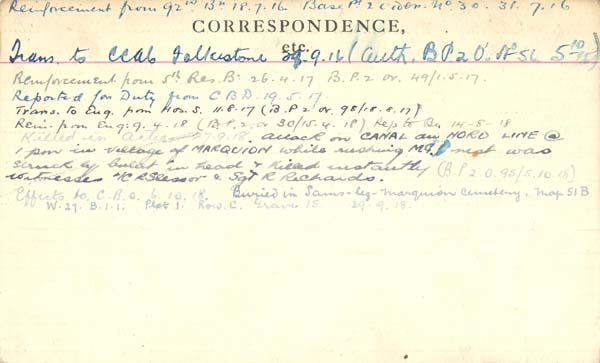 Reinforcement from 92nd Bn 18.7.16. Base Pt 2 order No 30. 31. 7. 16
CORRESPONDENCE,
etc.
Trans. to CCAC Folkestone 9.16 (Auth. B.P.2 O. No 56 5/10/16)
Reinforcement from 5th Res. Bn 26.4.17 B.P.2 or. 49/1.5.17.
Reported for Duty from C.B.D. 19.5.17.
Trans. to Eng. from Hos. 5. 11.8.17 (B.P.2 or 98/18.8.17)
Rein. from Eng. 9.4.18 (B.P.2 or 30/15.4.18) Rep to Bn 14-5-18
Killed in Action 27.9.18, attack on CANAL du NORD LINE @
1 pm in village of MARQUION while rushing M.G. nest was
struck by bullet in head & killed instantly (B.P.2.O.95/5.10.18)
witnesses Slessor & Sgt R Richards.
Effects to C.B.O. 6.10.18. Buried in Sains-lez-Marquion Cemetery. Map 51B
W.27.B.1.1. Plot 1. Row C. Grave 15. 29.9.18.